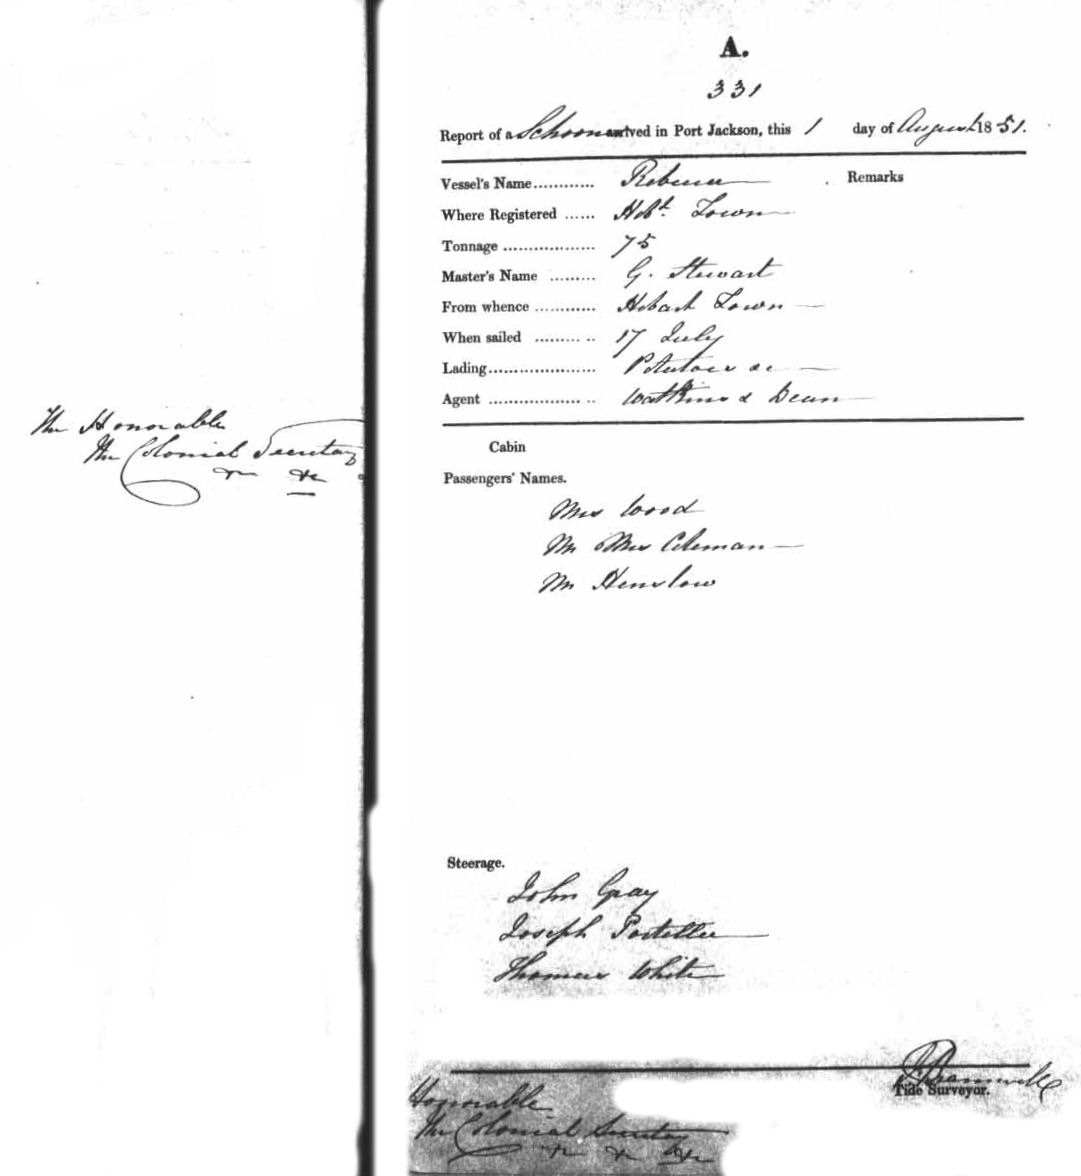 The Honorable
The Colonial Secretary
&c &c
A.
331
Report of a Schooner arrived in Port Jackson, this 1 day of August 1851.
Vessel's Name............ Rebecca Remarks
Where Registered ...... Hobt. Town
Tonnage .................. 75
Master's Name ......... G. Stewart
From whence ............ Hobart Town
When sailed ......... .. 17 July
Lading..................... Potatoes &c
Agent .................. .. Watkins & Dean
Cabin
Passengers' Names.
Mrs Wood
Mr & Mrs Coleman
Mr Henslow
Steerage.
John Gray
Joseph
Thomas White
Bramwell
Tide Surveyor.
Honorable
The Colonial Secretary
&c &c &c